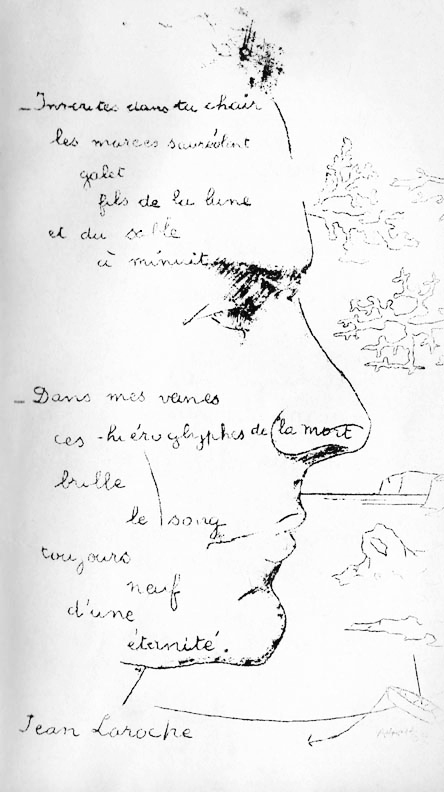 – Inscrites dans ta chair
les marees sauréolent
galet
fils de la lune
et du sable
à minuit
– Dans mes veines
ces hiéroglyphes de la mort
brille
le sang
toujours
neuf
d'une
éternité.
Jean Laroche